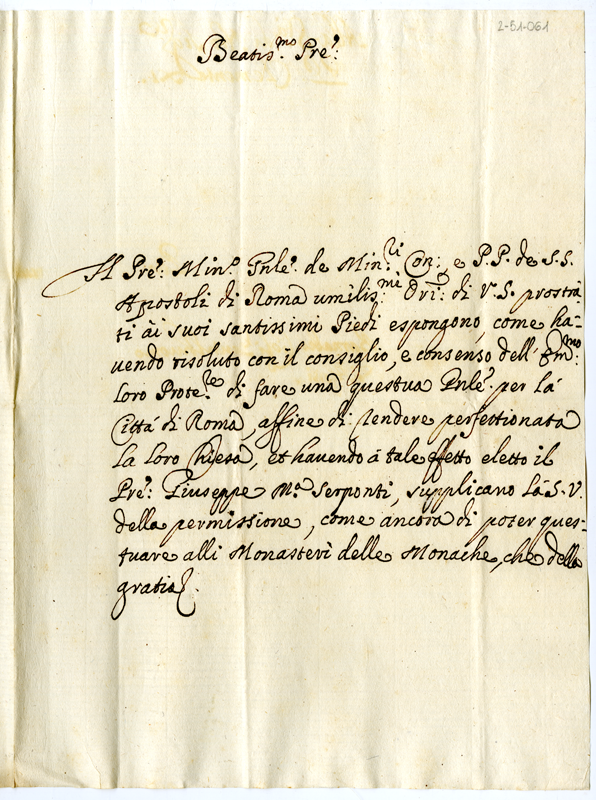 2-51-061
Beatis.mo Pre.
Il Pre: Min.o Gnle. de Min.ri Con: e P.P. de S.S.
Apostoli di Roma umilis.mi Ori: di V.S. prostra
ti ài suoi santissimi Piedi espongono, come ha-
uendo risoluto con il consiglio, e consenso dell' Em.mo
loro Prote.re di fare una questua Gnle. per la
Città di Roma, affine di rendere perfettionata
la loro Chiesa, et hauendo à tale effetto eletto il
Pre: Giuseppe M.a Serponti, supplicano la S.V.
della permissione, come ancora di poter ques-
tuare alli Monasteri delle Monache, che della
gratia